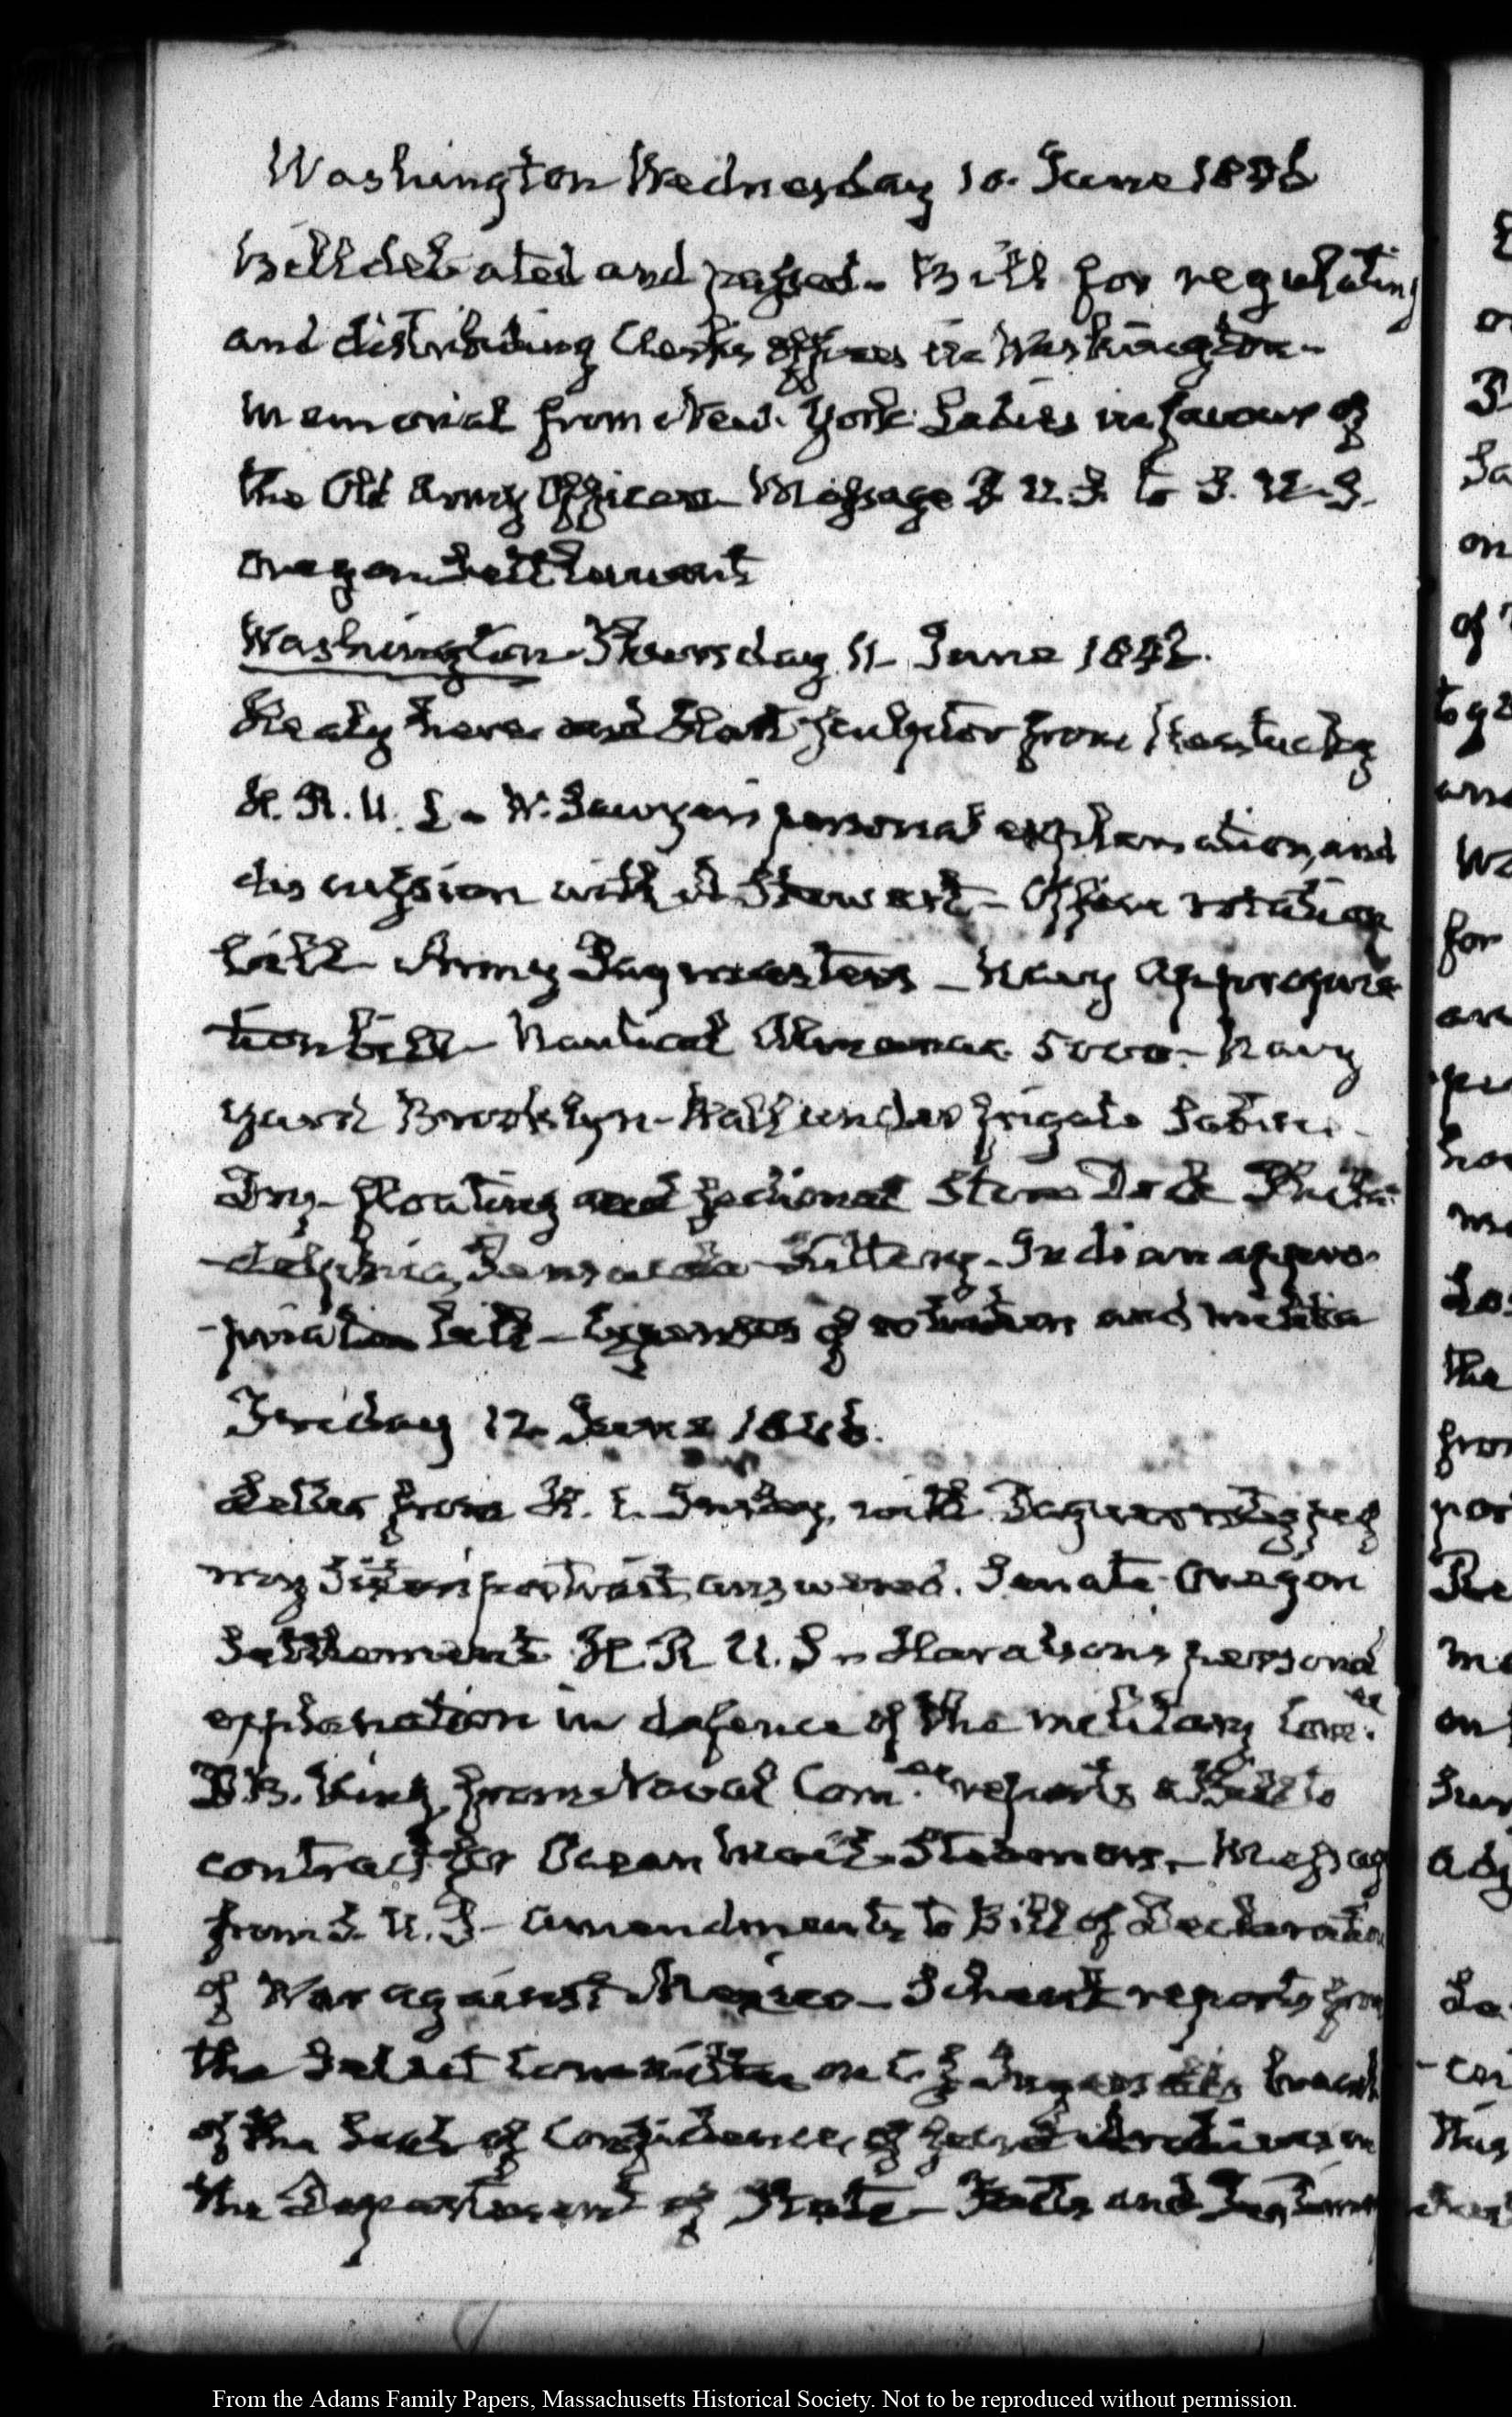 Washington Wednesday 10. June 1846
Bill debated and passed. Bill for regulating
and distributing Clerks offices in Washington.
Memorial from New York Ladies in favour of
the Old Army Officers Message P. U.S. to S. U.S.
Oregon Settlement
Washington Thursday 11 June 1846.
Healy here and Hart Sculptor from Kentucky
H. R. U. S. W. Sawyer's personal explanation, and
discussion with A Stewart - Office rotation
bill Army Paymasters - Navy Appropria
tion bill - Nautical Almanac 5000 - Navy
yard Brooklyn - Wall under frigate Sabine
Dry floating and sectional Stone Dock Phila
delphia, Pensacola Kittery - Indian appro
priation bill - Expenses of rotation and militia
Friday 12 June 1846.
Letter from H. L. with Daguerreotyped
my portrait answered. Senate Oregon
Settlement H. R U. S - Haralson's personal
explanation in defence of the military Com.ee
T. B. King from Naval Com.ee reports a Bill to
contract for Ocean Mail Steamers, - Message
from S. U. S - amendments to Bill of Declaration
of War against Mexico - Schenck reports from
the Select Committee on C. J Ingersoll's breach
of the Seal of Confidence of secret on
the Department of State -
From the Adams Family Papers, Massachusetts Historical Society. Not to be reproduced without permission.